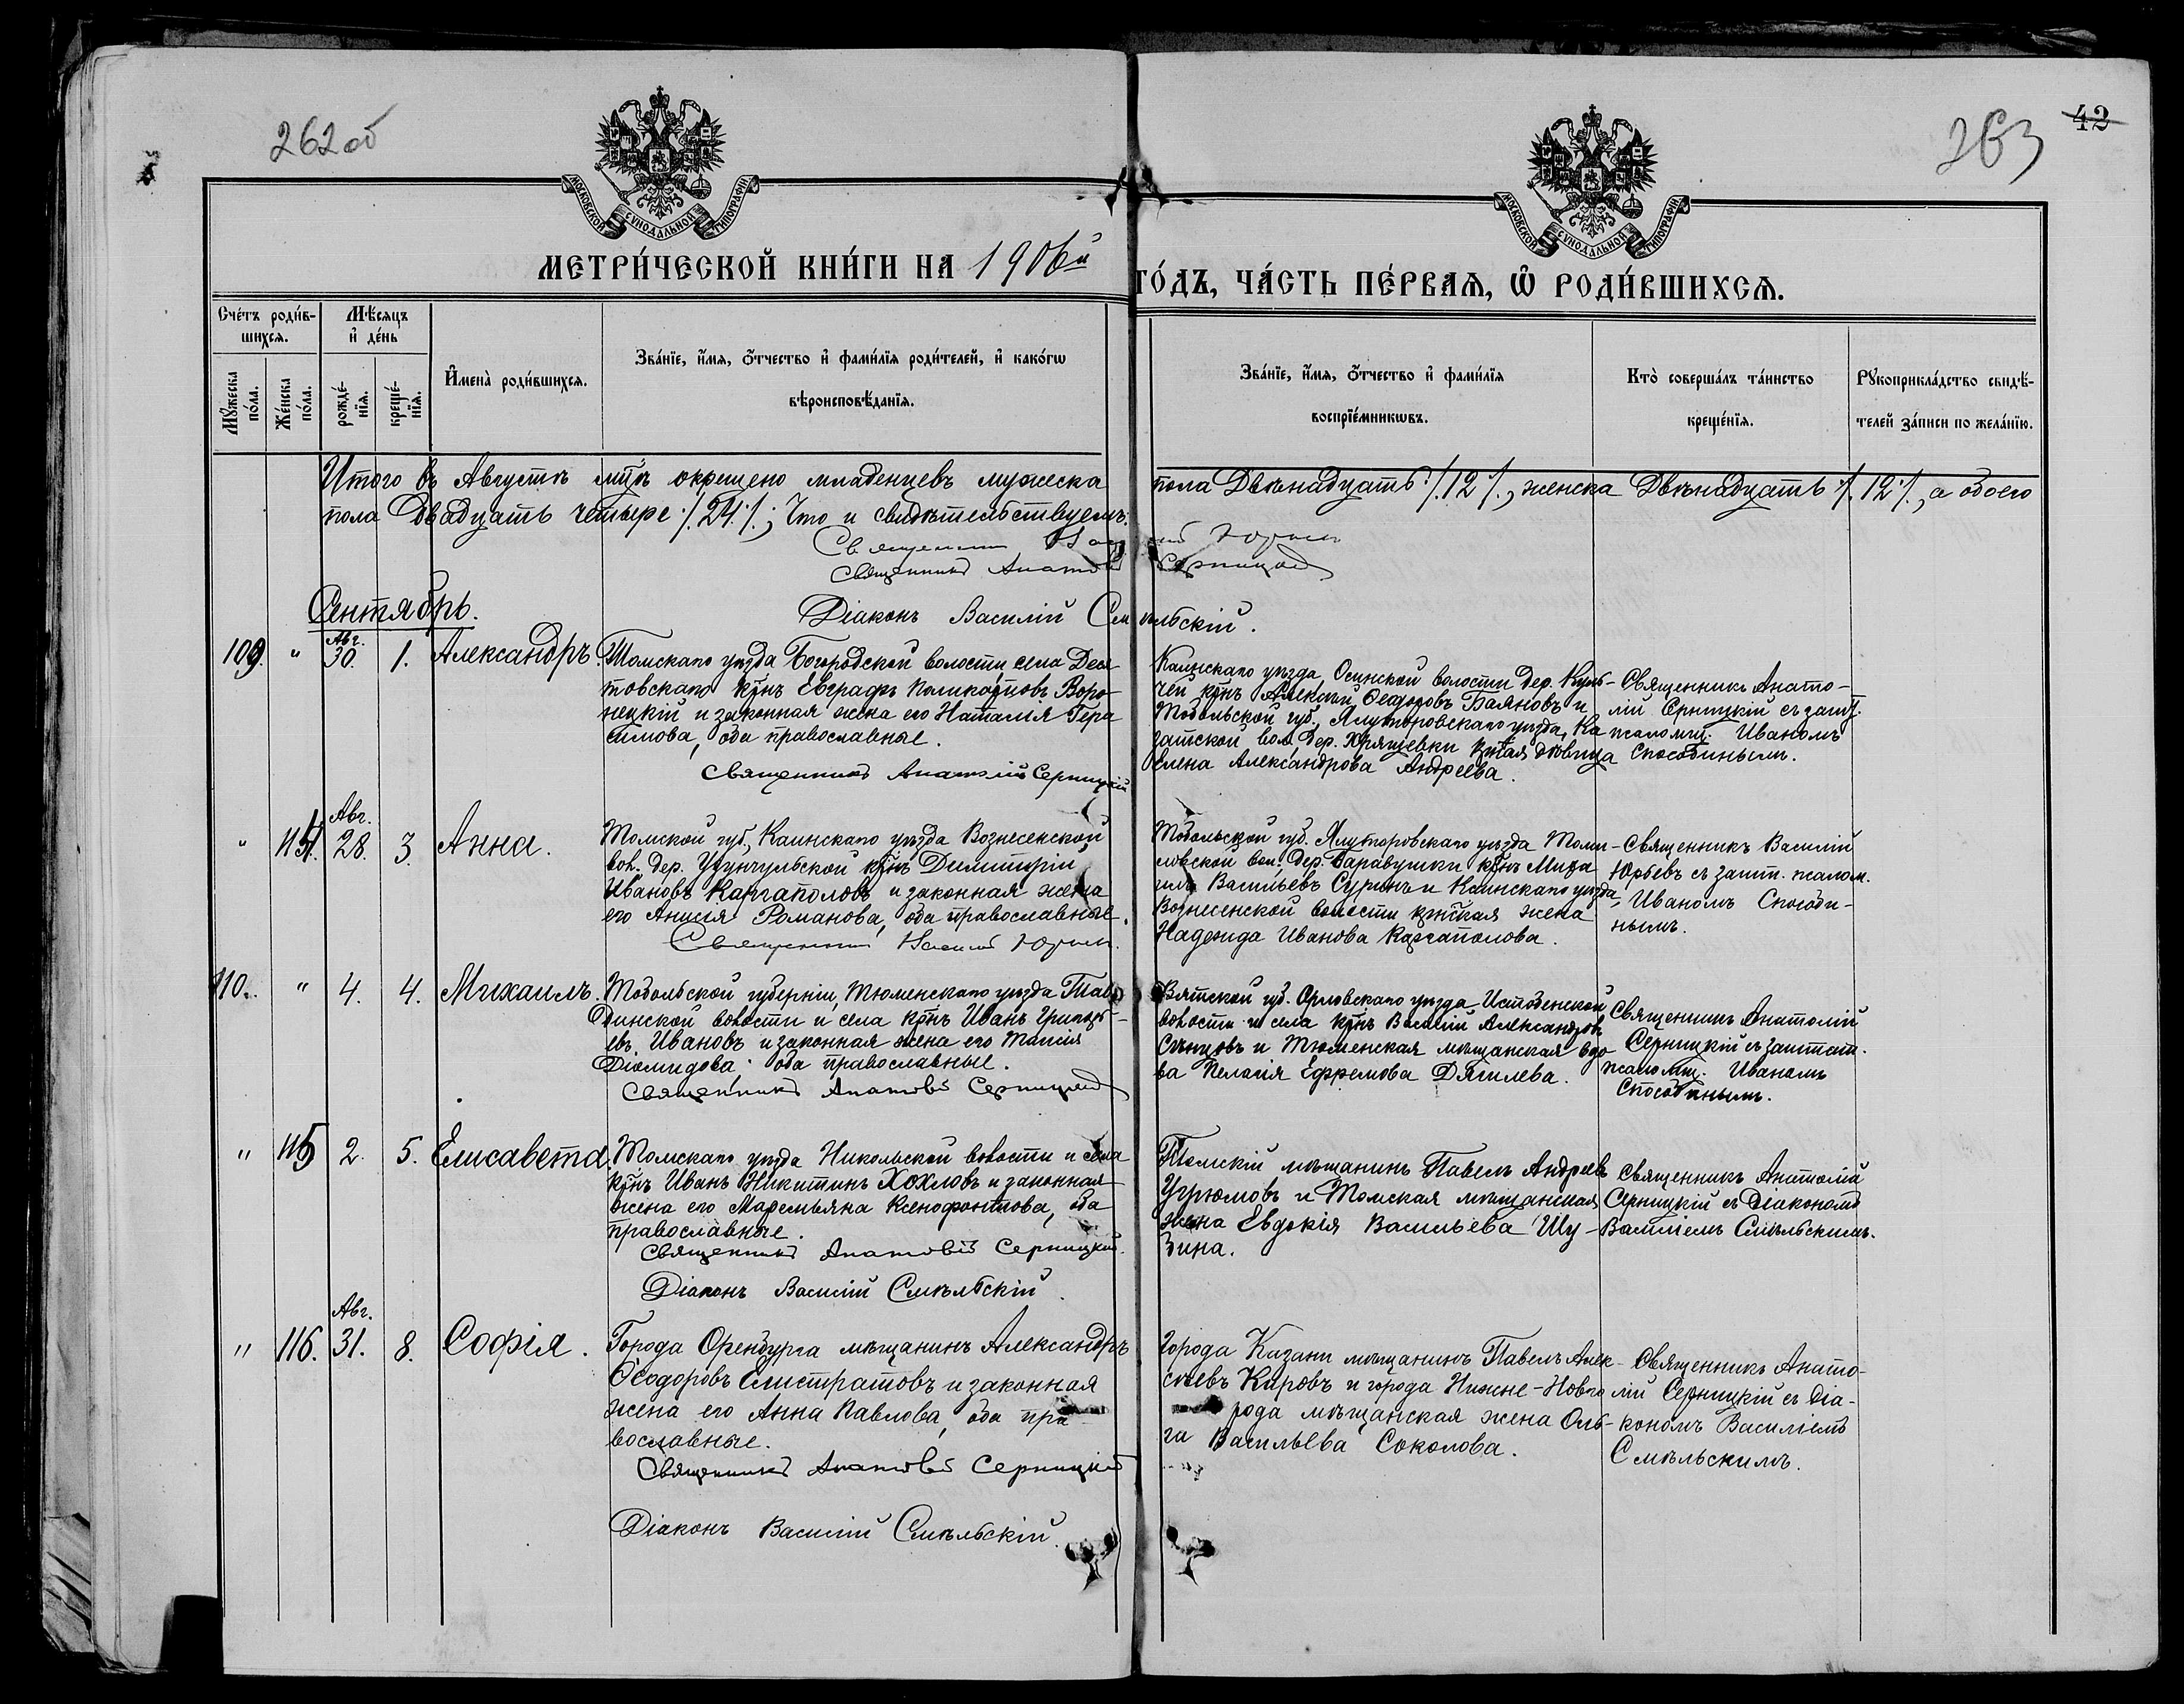 262 об
263
42
МОСКОВСКОЙ СѴНОДАЛЬНОЙ ТИПОГРАФІИ
МОСКОВСКОЙ СѴНОДАЛЬНОЙ ТИПОГРАФІИ
МЕТРИ́ЧЕСКОЙ КНИ́ГИ НА 1906й
ГО́ДЪ, ЧА́СТЬ ПЕ́РВАѦ, Ѡ҆ РОДИ́ВШИХСѦ.
Сче́тъ роди́в-
шихсѧ.
Мѣ́сѧцъ
и҆ де́нь
Мꙋ́жеска
по́ла.
Же́нска
по́ла.
рожде́-
нїѧ.
креще́-
нїѧ.
И҆мена̀ роди́вшихсѧ.
Зва́нїе, и҆́мѧ, ѻ҆́тчество и҆ фами́лїѧ роди́телей, и҆ како́гѡ
вѣроисповѣ́данїѧ.
Зва́нїе, и҆́мѧ, ѻ҆́тчество и҆ фами́лїѧ
воспрїе́мникѡвъ.
Кто̀ соверша́лъ та́инство
креще́нїѧ.
Рꙋкоприкла́дство свидѣ́-
телей за́писи по жела́нїю.
Итого въ Августѣ мцѣ окрещено младенцевъ мужеска
пола Двѣнадцать ./.12./., женска Двѣнадцать ./.12./., а обоего
пола Двадцать четыре ./.24./.; Что и свидѣтельствуемъ:
Священникъ Василій Юрьевъ
Священникъ Анатолій Серницкій
Діаконъ Василій Смѣльскій.
Сентябрь.
Авг.
109. " 30. 1. Александръ.
Томскаго уѣзда Богородской волости, села Деся
товскаго кр͠нъ Евграфъ Поликарповъ Воро-
нецкій и законная жена его Наталія Гера
симова, оба православные.
Священникъ Анатолій Серницкій
Каинскаго уѣзда, Осинской волости дер.
кр͠нъ Алексѣй Ѳеодоровъ Баяновъ и
Тобольской губ., Ялуторовскаго уѣзда, Ка
гатской вол. дер. Хрящевки кр͠кая дѣвица
Елена Александрова Андреева.
Священникъ Анато-
лій Серницкій съ зашт.
псаломщ. Иваномъ
Способинымъ.
Авг.
" 114. 28. 3. Анна.
Томской губ., Каинскаго уѣзда Вознесенской
вол. дер. Узунгульской кр͠нъ Димитрій
Ивановъ Каргаполовъ и законная жена
его Анисія Романова, оба православные.
Священникъ Василій Юрьевъ.
Тобольской губ. Ялуторовскаго уѣзда Томи-
ловской вол. дер. Баравушки кр͠нъ Миха
илъ Васильевъ Суринъ и Каинскаго уѣзда,
Вознесенской волости кр͠нская жена
Надежда Иванова Каргаполова.
Священникъ Василій
Юрьевъ съ зашт. псалом.
Иваномъ Способи-
нымъ.
110. " 4. 4. Михаилъ.
Тобольской губерніи, Тюменскаго уѣзда Тав
динской волости и села кр͠нъ Иванъ Григорь-
евъ Ивановъ и законная жена его Таисія
Діомидова; оба православные.
Священникъ Анатолій Серницкій
Вятской губ. Орловскаго уѣзда Истобенской
волости и села кр͠нъ Василій Александровъ
Сѣнцовъ и Тюменская мѣщанская вдо
ва Пелагія Ефремова Дягилева.
Священникъ Анатолій
Серницкій съ заштат.
псаломщ. Иваномъ
Способинымъ.
" 115 2. 5. Елисавета.
Томскаго уѣзда Никольской волости и села
кр͠нъ Иванъ Никитинъ Хохловъ и законная
жена его Маремьяна Ксенофонтова, оба
православные.
Священникъ Анатолій Серницкій.
Діаконъ Василій Смѣльскій.
Томскій мѣщанинъ Павелъ Андреевъ
Угрюмовъ и Томская мѣщанская
жена Евдокія Васильева Шу-
бина.
Священникъ Анатолій
Серницкій съ Діакономъ
Василіемъ Смѣльскимъ.
Авг.
" 116. 31. 8. Софія.
Города Оренбурга мѣщанинъ Александръ
Ѳеодоровъ Елистратовъ и законная
жена его Анна Павлова, оба пра-
вославные.
Священникъ Анатолій Серницкій
Діаконъ Василій Смѣльскій.
Города Казани мѣщанинъ Павелъ Алек-
сѣевъ Кировъ и города Нижне-Новго
рода мѣщанская жена Оль-
га Васильева Соколова.
Священникъ Анато-
лій Серницкій съ Діа-
кономъ Василіемъ
Смѣльскимъ.